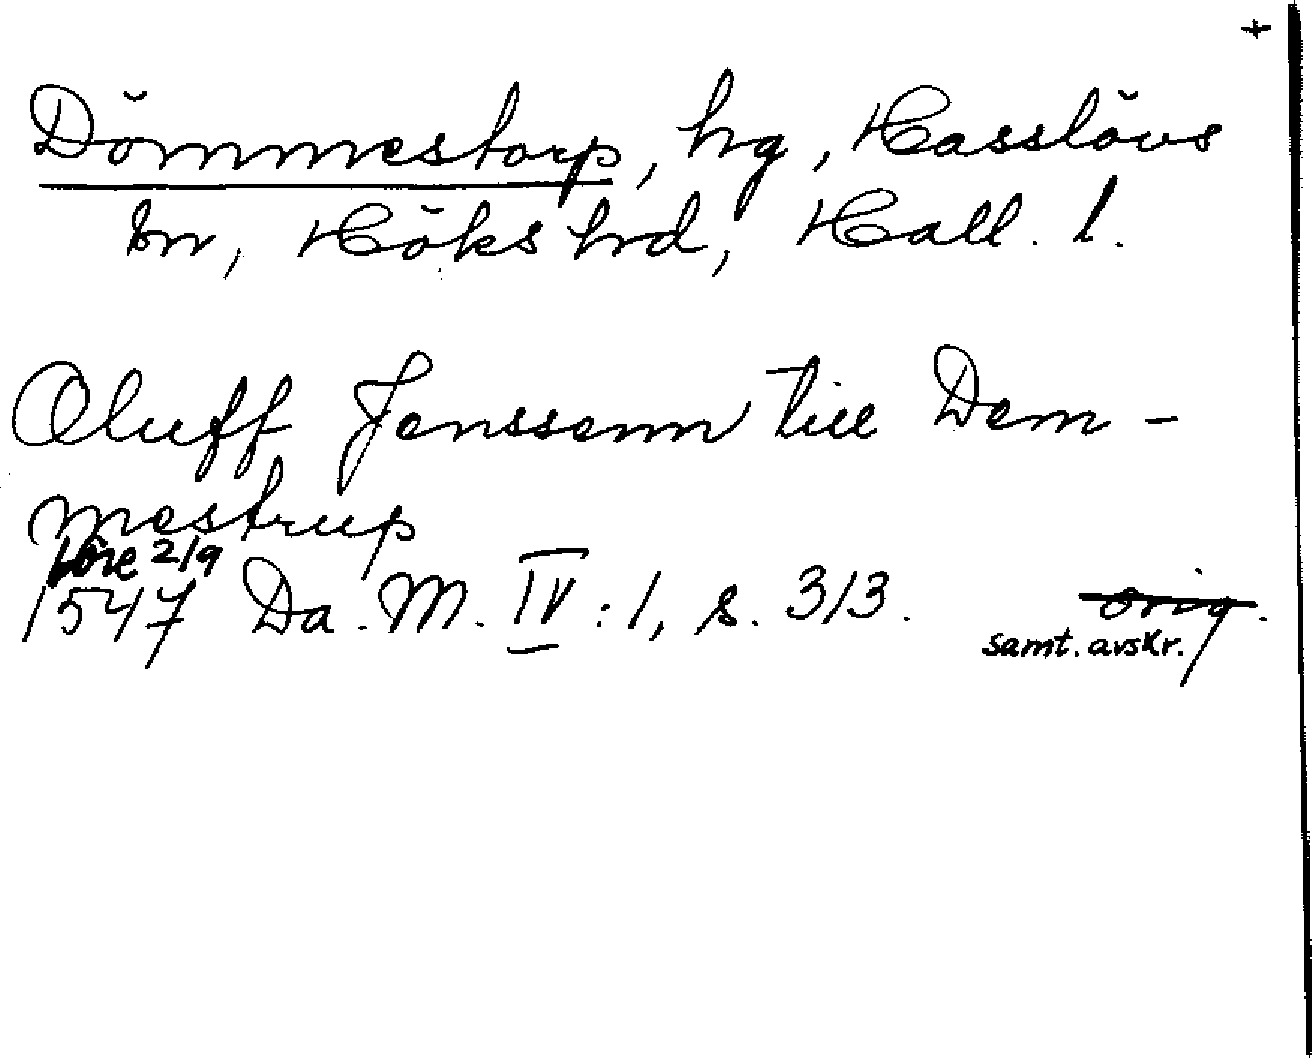 +
Dömmestorp, hg, Hasslövs
sn, Höks hrd, Hall. l.
Oluff Jenssenn till Dem-
mestrup
före 2/9
1547 Da. M. IV:1, s. 313. orig.
samt. avskr.